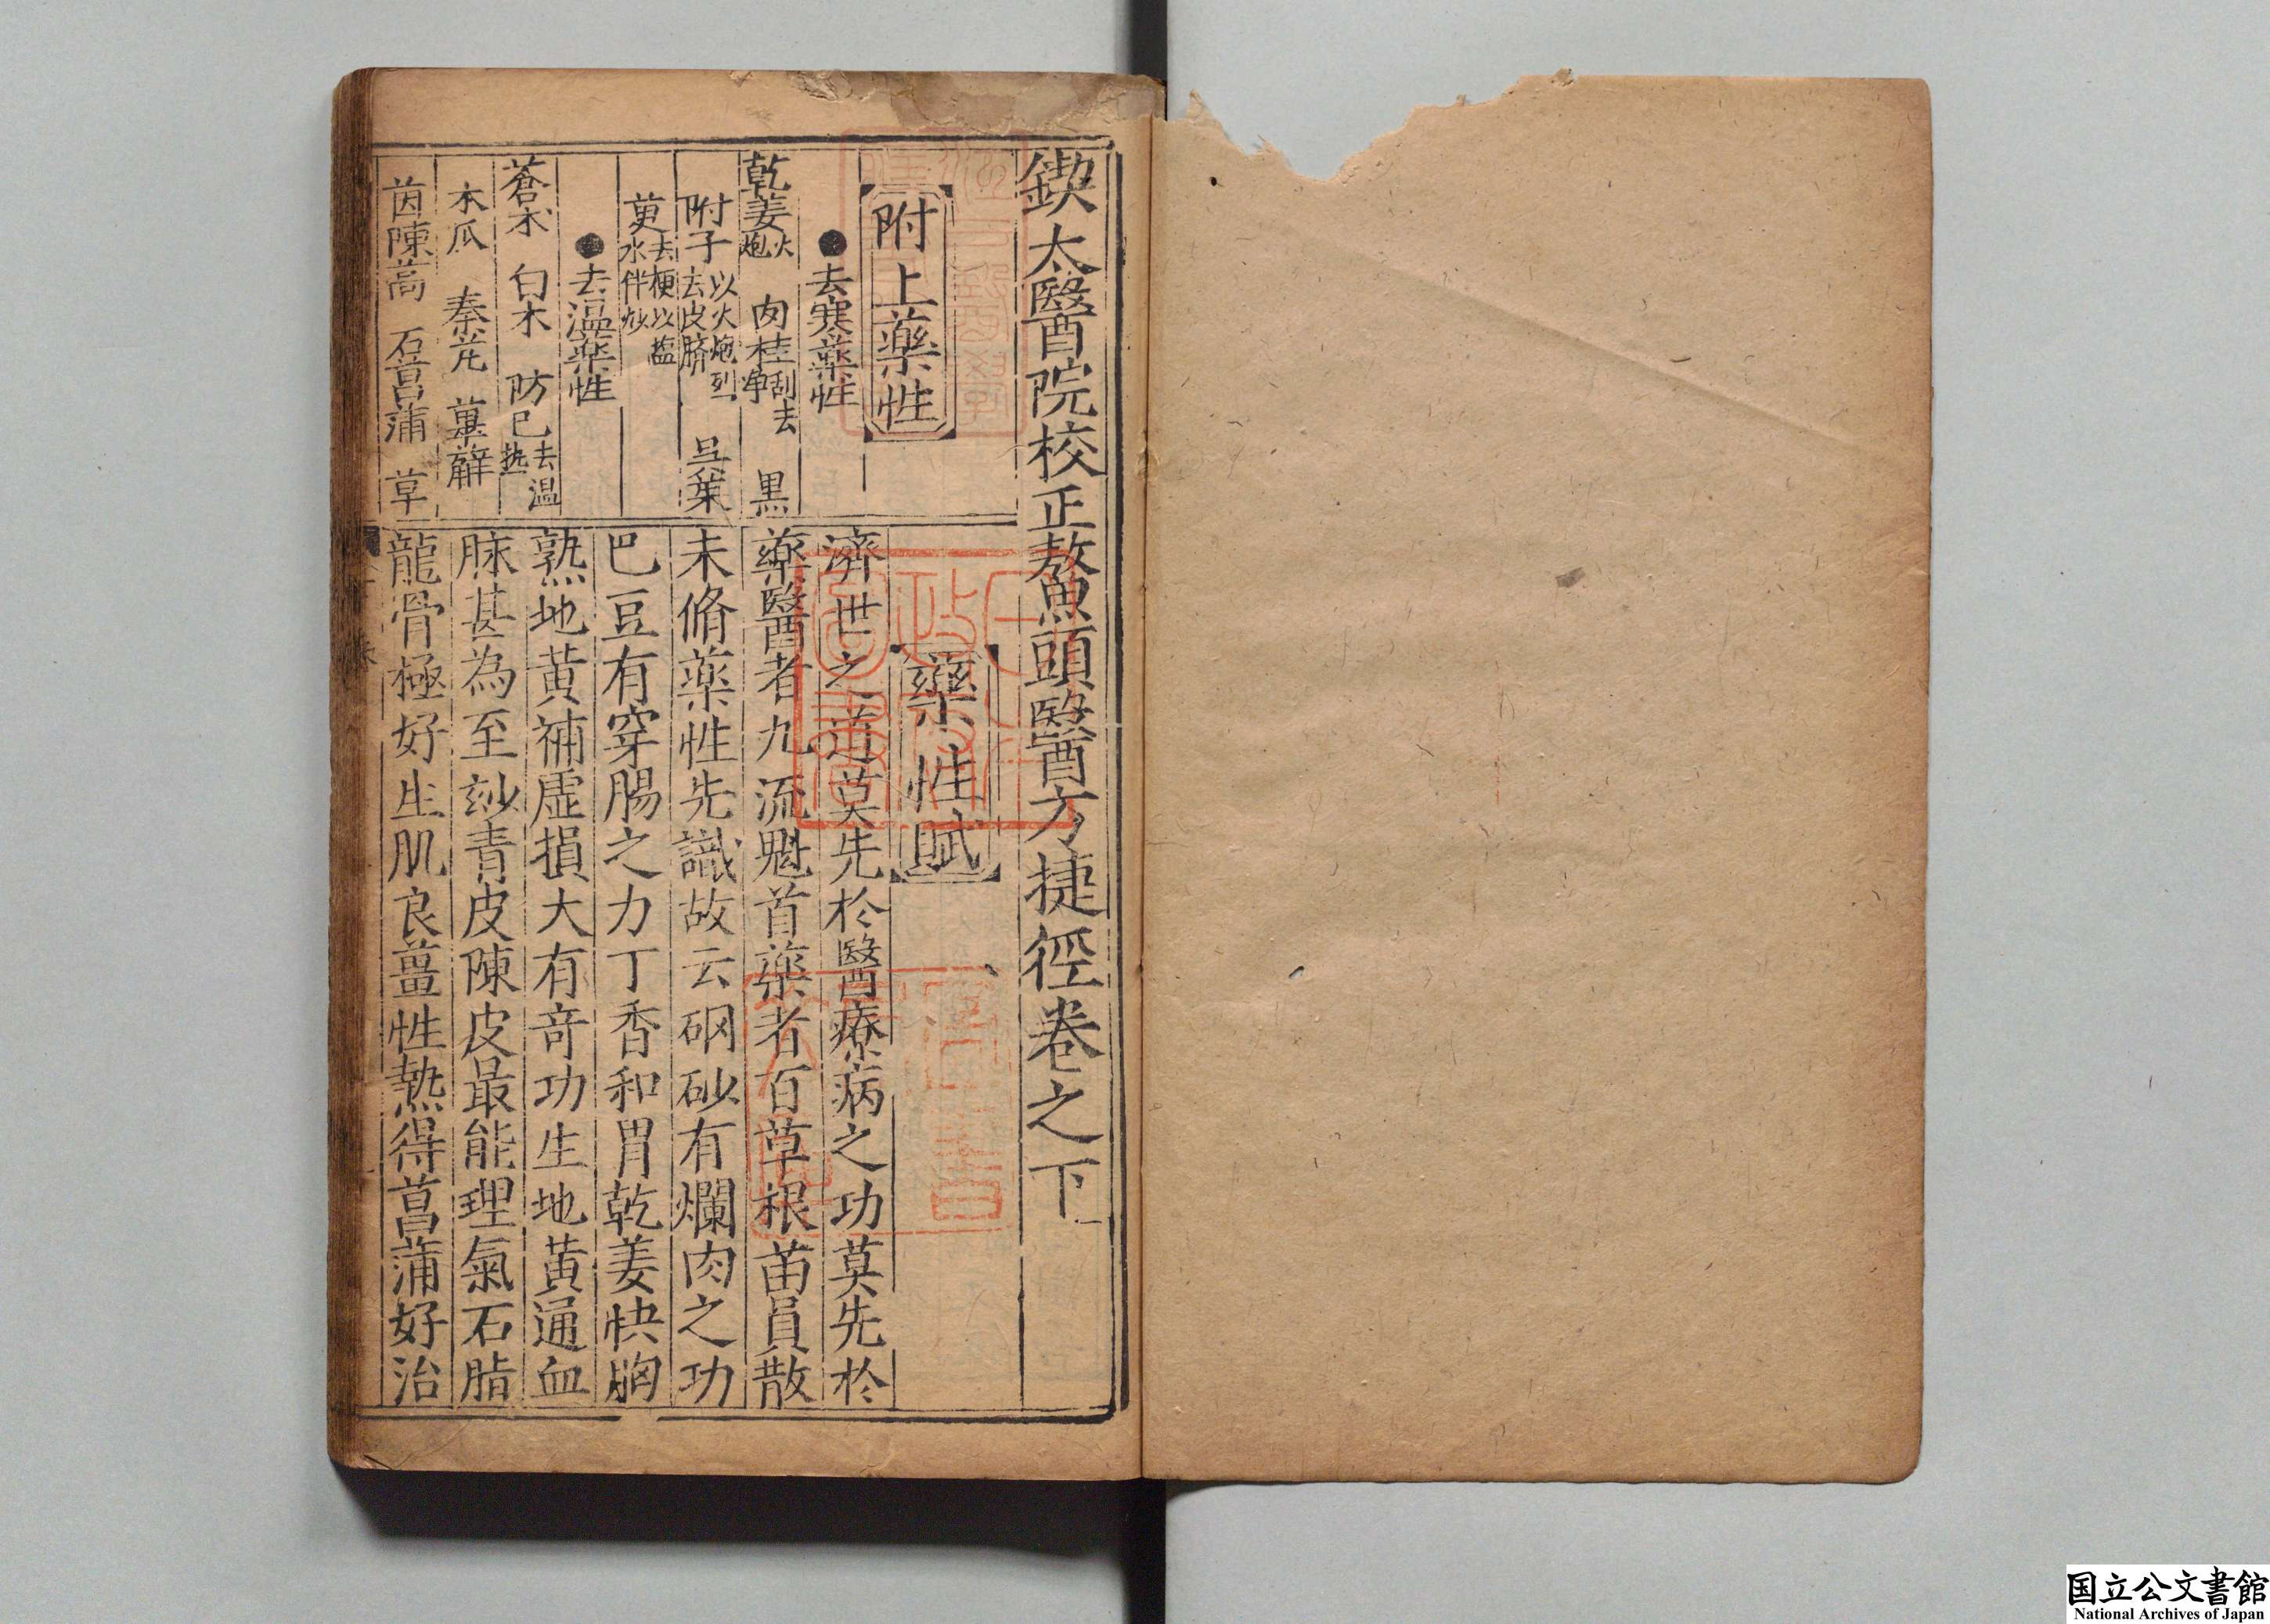 鍥太醫院校正𩹉頭醫方捷徑卷之下
附上藥性
●去寒藥性
乾姜火炮 肉桂刮去净 黑
附子以火炮列去皮臍 吴茱
萸去梗以盐水伴炒
●去温藥性
蒼术 白术 防已去温热
木瓜 秦芃 萆薢
茵陳蒿 石菖蒲 草
藥性賦
濟世之道莫先於醫療病之功莫先於
藥醫者九流魁首藥者百草根苗員散
未脩藥性先識故云硇砂有爛肉之功
巴豆有穿腸之力丁香和胃乾姜快胸
熟地黃補虛損大有竒功生地黃通血
脉甚為至玅青皮陳皮最能理氣石脂
龍骨極好生肌良薑性熱得菖蒲好治
国立公文書館
National Archives of Japan